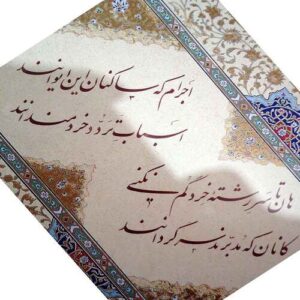 اجرام که ساکنان این ایوانند
اسباب تردد خردمندانند
هان تا سر رشته خرد گم نکنی
کانان که مدبرند سرگردانند